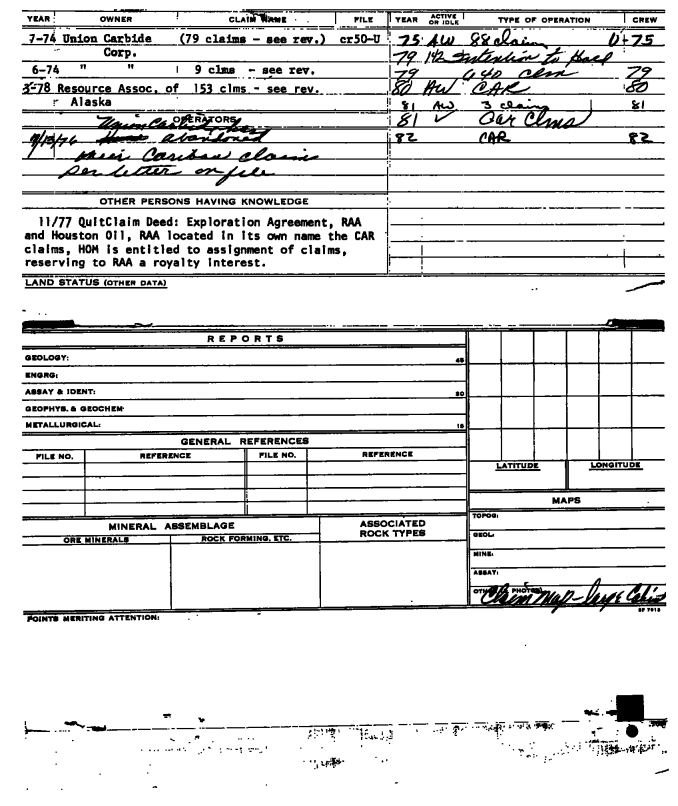 YEAR OWNER CLAIM NAME FILE YEAR ACTIVE OR IDLE TYPE OF OPERATION CREW
7-74 Union Carbide (79 claims - see rev.) cr50-U 75 AW 88 claim U-75
Corp. 79 142 Intention to Hold
6-74 " " 9 clms - see rev. 79 640 clm 79
3-78 Resource Assoc. of 153 clms - see rev. 80 AW CAR 80
Alaska 81 AW 3 claims 81
OPERATORS 81 ✓ Car Clms
Union Carbide has
9/13/76 abandoned 82 CAR 82
their Caribou claim
per letter on file
OTHER PERSONS HAVING KNOWLEDGE
11/77 QuitClaim Deed: Exploration Agreement, RAA
and Houston Oil, RAA located in its own name the CAR
claims, HOM is entitled to assignment of claims,
reserving to RAA a royalty interest.
LAND STATUS (OTHER DATA)
REPORTS
GEOLOGY: 45
ENGRG:
ASSAY & IDENT: 30
GEOPHYS. & GEOCHEM:
METALLURGICAL: 15
GENERAL REFERENCES
FILE NO. REFERENCE FILE NO. REFERENCE
LATITUDE LONGITUDE
MAPS
TOPOG:
GEOL:
MINE:
ASSAY:
OTHER & PHOTOS
Claim Map - large Cabinet
MINERAL ASSEMBLAGE
ORE MINERALS ROCK FORMING, ETC.
ASSOCIATED
ROCK TYPES
POINTS MERITING ATTENTION: